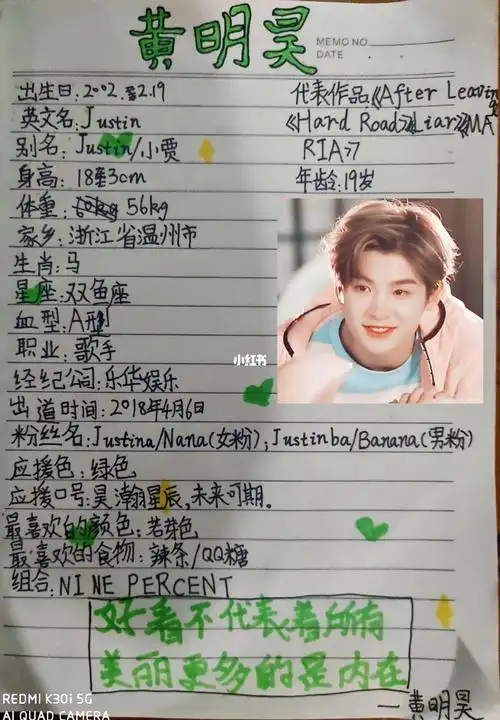 黄明昊
MEMO NO.
DATE
出生日:2002.2.19
代表作品《After Leaving
英文名:Justin
《Hard Road》《Liar》《MA
别名:Justin/小贾
RIA》7
身高:183cm
年龄:19岁
体重:56kg
家乡:浙江省温州市
生肖:马
星座:双鱼座
血型:A型
职业:歌手
小红书
经纪公司:乐华娱乐
出道时间:2018年4月6日
粉丝名:Justina/Nana(女粉);Justinba/Banana(男粉)
应援色:绿色
应援口号:昊瀚星辰,未来可期。
最喜欢的颜色:若芽色
最喜欢的食物:辣条/QQ糖
组合:NINE PERCENT
好看不代表着所有
美丽更多的是内在
—黄明昊
REDMI K30i 5G
AI QUAD CAMERA